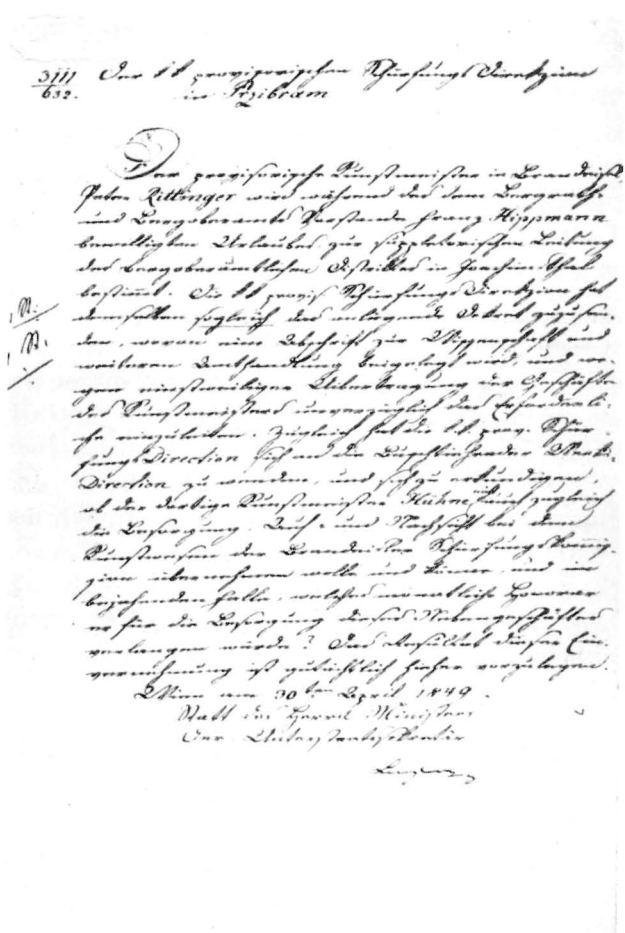 3111
632.
Der k k provisorischen Schurfungs Direkzion
in Przibram
Der provisorische Kunstmeister in Brandeisl,
Peter Rittinger wird während des dem Bergrath
und Bergoberamts Vorstande Franz Hippmann
bewilligten Urlaubes zur suppletorischen Leitung
des bergoberämtlichen Distriktes in Joachimsthal
bestimmt. Die k k provis Schürfungs Direkzion hat
demselben sogleich das anliegende Dekret zuzusen-
den, wovon eine Abschrift zur Wissenschaft und
weiteren Amthandlung beigelegt wird, und we-
gen einstweiliger Übertragung der Geschäfte
des Kunstmeisters unverzüglich das Erforderli-
che einzuleiten. Zugleich hat die k.k. prov. Schür-
fungs Direction sich an die Werks-
Direction zu wenden, und sich zu erkundigen,
ob der dortige Kunstmeister Hühne nicht auch zugleich
die Besorgung, Auf- und Nachsicht bei dem
Kunstwesen der Brandeisler Schürfungskommis-
zion übernehmen wolle und könne, und im
bejahenden Falle, welches monatliche Honorar
er für die Besorgung dieses Nebengeschäftes
verlangen würde? Das Resultat dieser Ein-
vernehmung ist gutächtlich hieher vorzulegen.
Wien am 30ten April 1849.
Statt des Herrn Ministers
Der Unterstaatssekretär